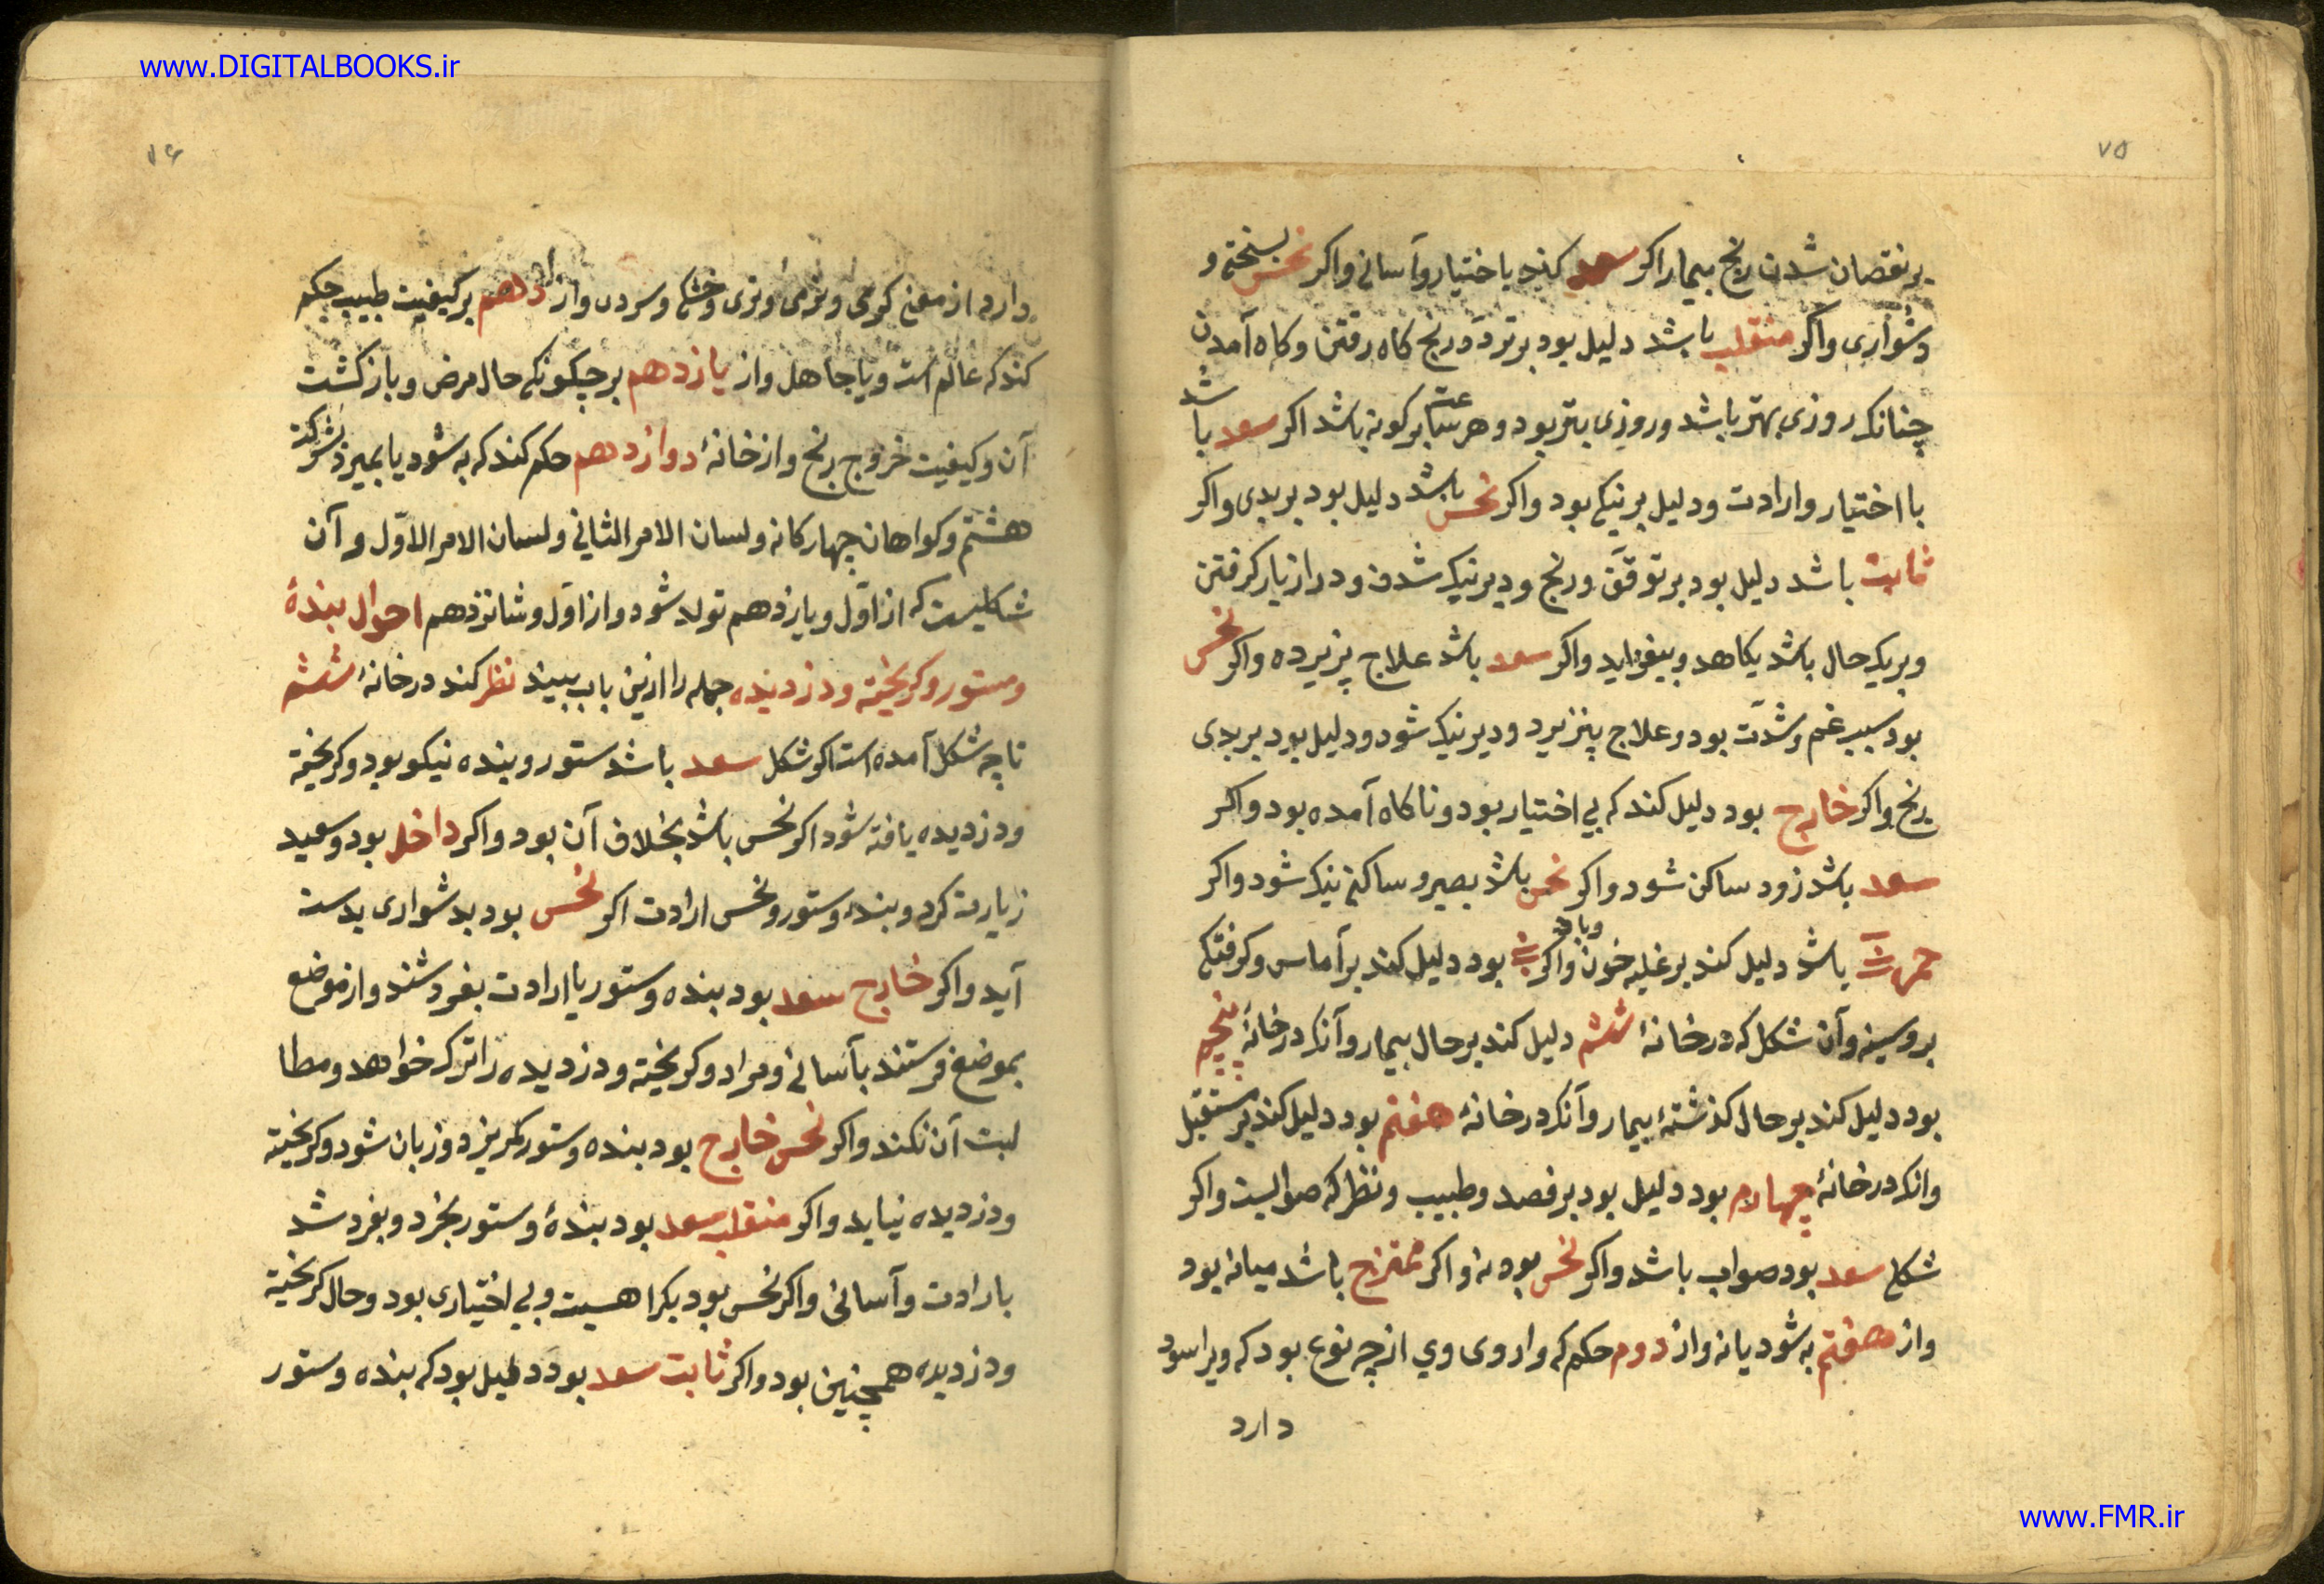 www.DIGITALBOOKS.ir
٧٥
بر نقصان شدن رنج بیمار اکر سعد کند با ختیار وآسانی واکر نحس بسختی و
دشواری واکر منقلب باشد دلیل بود بر تردّد رنج کاه رفتن وکاه آمدن
چنانک روزی بهتر باشد و روزی بتر بود و هر ساعت بر کونه باشد اکر سعد با شد
با اختیار وارادت ودلیل بر نیکی بود واکر نحس باشد دلیل بود بر بدی واکر
ثابت باشد دلیل بود بر توقّف ورنج ودیر نیک شدن ودراز یار کرفتن
وبریک حال باشد یکاهد وبیفزاید واکر سعد باشد علاج پزیرده واکر نحس
بود سبب غم وشدّت بود وعلاج پنزیرد ودیر نیک شود ودلیل بود بر بدی
رنج واکر خارج بود دلیل کند که بی اختیار بود وناکاه آمده بود واکر
سعد باشد زود ساکن شود واکر نحس باشد بصبر وساکنی نیک شود واکر
حمرت باشد دلیل کند بر غلبه خون وباد واکر بود دلیل کند بر آماس وکرفتکی
بر وسینه وآن شکل که در خانهٔ ششم دلیل کند بر حال بیمار وآنک در خانهٔ پنجم
بود دلیل کند بر حال کذشتهٔ بیمار وآنک در خانهٔ هفتم بود دلیل کند بر مستقبل
وانک در خانهٔ چهارم بود دلیل بود بر فصد وطبیب ونظر که صوابست واکر
شکل سعد بود صواب باشد واکر نحس بود نه واکر ممتزج باشد میانه بود
واز هفتم به شود یا نه واز دوم حکم که واروی وی از چه نوع بود که ویرا سود
دارد
٧٦
دارد از معنی کرمی ونرمی وتری وخشکی وسردی واز دهم بر کیفیت طبیب حکم
کند که عالم است ویا جاهل واز یازدهم بر چکونکی حال مرض وباز کشت
آن وکیفیت خروج رنج واز خانهٔ دوازدهم حکم کند که به شود یا بمیرد بشرکت
هشتم وکواهان چهارکانه ولسان الامر الثانی ولسان الامر الاوّل وآن
شکلیست که از اوّل ویازدهم تولد شود واز اوّل وشانزدهم احوال بندهٔ
وستور وکریخته ودزدیده جمله را ازین باب ببیند نظر کند در خانهٔ ششم
تا چه شکل آمده است اکر شکل سعد باشد ستور وبنده نیکو بود وکریخته
ودزدیده یافته شود اکر نحس باشد بخلاف آن بود واکر داخل بود وسعید
زیارت کرد وبندهٔ وستور ونحس ارادت اکر نحس بود بدشواری بدست
آید واکر خارج سعد بود بنده وستور با ارادت بفروشند واز موضع
بموضع فرستند بآسانی ومراد وکریخته ودزدیده را ترک خواهد ومطا
لبت آن نکند واکر نحس خارج بود بنده وستور بکریزد وزیان شود وکریخته
ودزدیده نیاید واکر منقلب سعد بود بندهٔ وستور بخرد وبفروشد
بارادت وآسانی واکر نحس بود بکراهیت وبی اختیاری بود وحال کریخته
ودزدیده همچنین بود واکر ثابت سعد بود دلیل بود که بنده وستور
www.FMR.ir